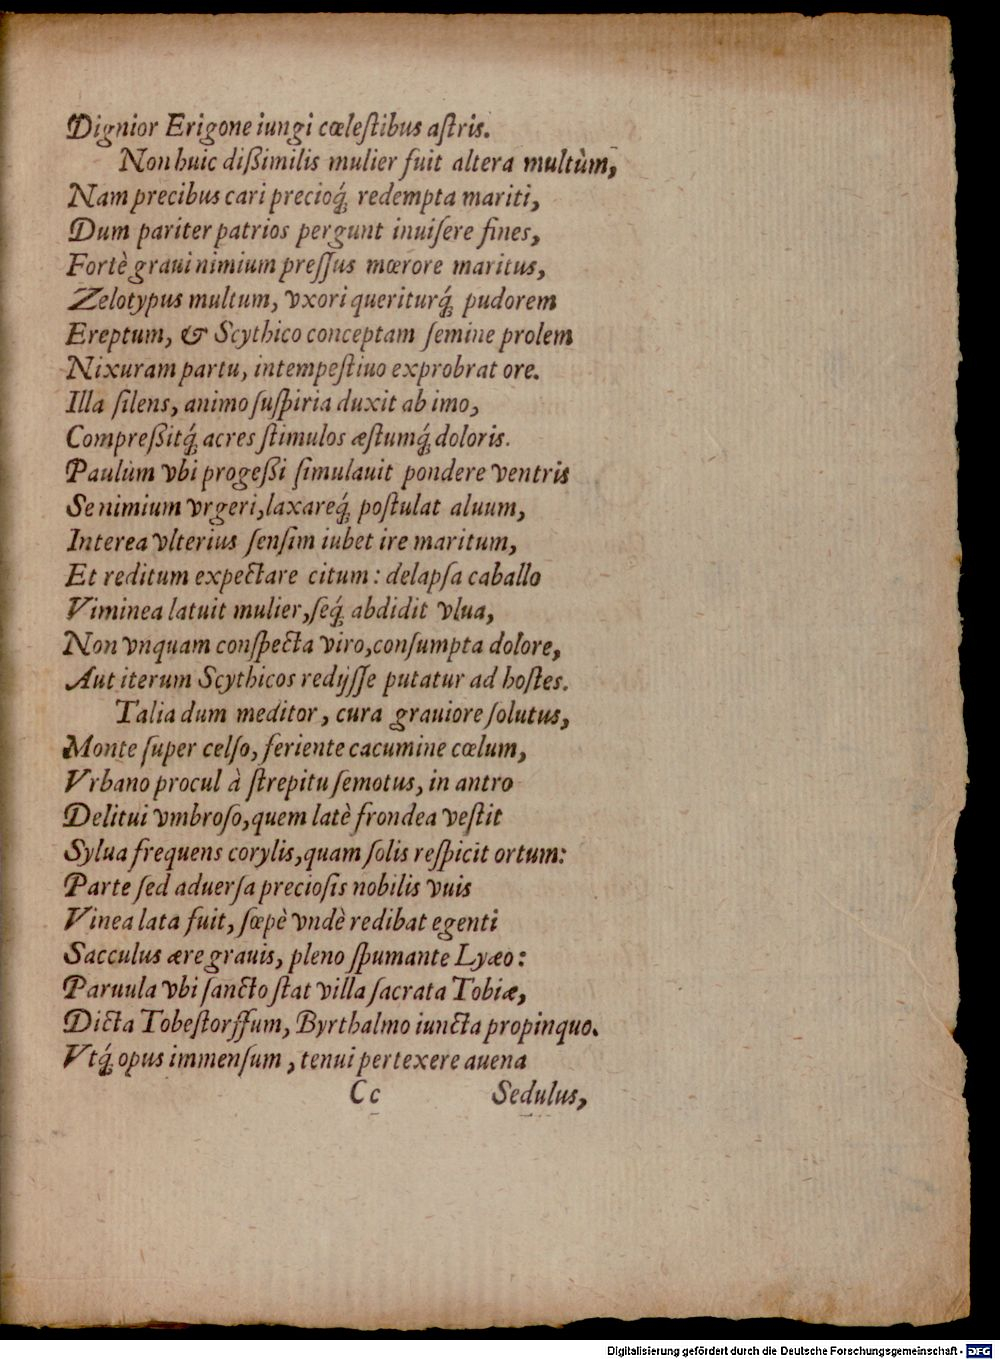 Dignior Erigone iungi cœleſtibus aſtris.
Non huic dißimilis mulier fuit altera multùm,
Nam precibus cari precioq́; redempta mariti,
Dum pariter patrios pergunt inuiſere fines,
Fortè graui nimium preſſus mœrore maritus,
Zelotypus multum, vxori queriturq́; pudorem
Ereptum, & Scythico conceptam ſemine prolem
Nixuram partu, intempeſtiuo exprobrat ore.
Illa ſilens, animo ſuſpiria duxit ab imo,
Compreßitq́; acres ſtimulos æſtumq́; doloris.
Paulùm vbi progeßi ſimulauit pondere ventris
Se nimium vrgeri, laxareq́; poſtulat aluum,
Interea vlterius ſenſim iubet ire maritum,
Et reditum expectare citum: delapſa caballo
Viminea latuit mulier, ſeq́; abdidit vlua,
Non vnquam conſpecta viro, conſumpta dolore,
Aut iterum Scythicos redijſſe putatur ad hoſtes.
Talia dum meditor, cura grauiore ſolutus,
Monte ſuper celſo, feriente cacumine cœlum,
Vrbano procul à ſtrepitu ſemotus, in antro
Delitui vmbroſo, quem latè frondea veſtit
Sylua frequens corylis, quam ſolis reſpicit ortum:
Parte ſed aduerſa precioſis nobilis vuis
Vinea lata fuit, ſœpè vndè redibat egenti
Sacculus ære grauis, pleno ſpumante Lyæo:
Paruula vbi ſancto ſtat villa ſacrata Tobiæ,
Dicta Tobeſtorffum, Byrthalmo iuncta propinquo.
Vtq́; opus immenſum, tenui pertexere auena
Cc Sedulus,
Digitalisierung gefördert durch die Deutsche Forschungsgemeinschaft - DFG